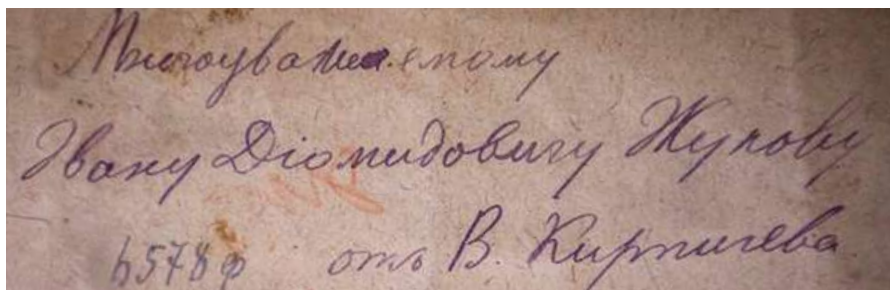 Многоуважаемому
Ивану Діомидовичу Жукову
отъ В. Кирпичева
б578ф